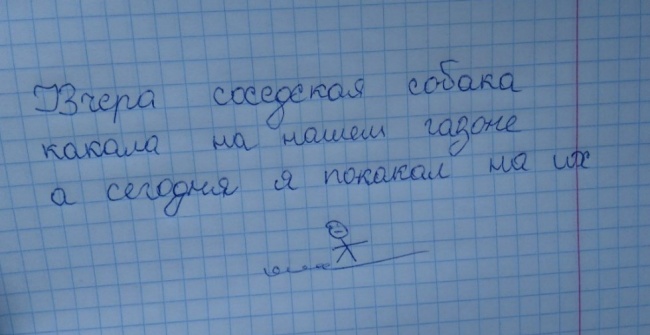 Вчера соседская собака
какала на нашем газоне
а сегодня я покакал на их